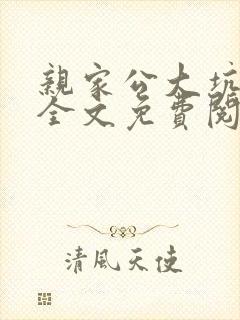 親家公大坑
全文免費閱
清風天使